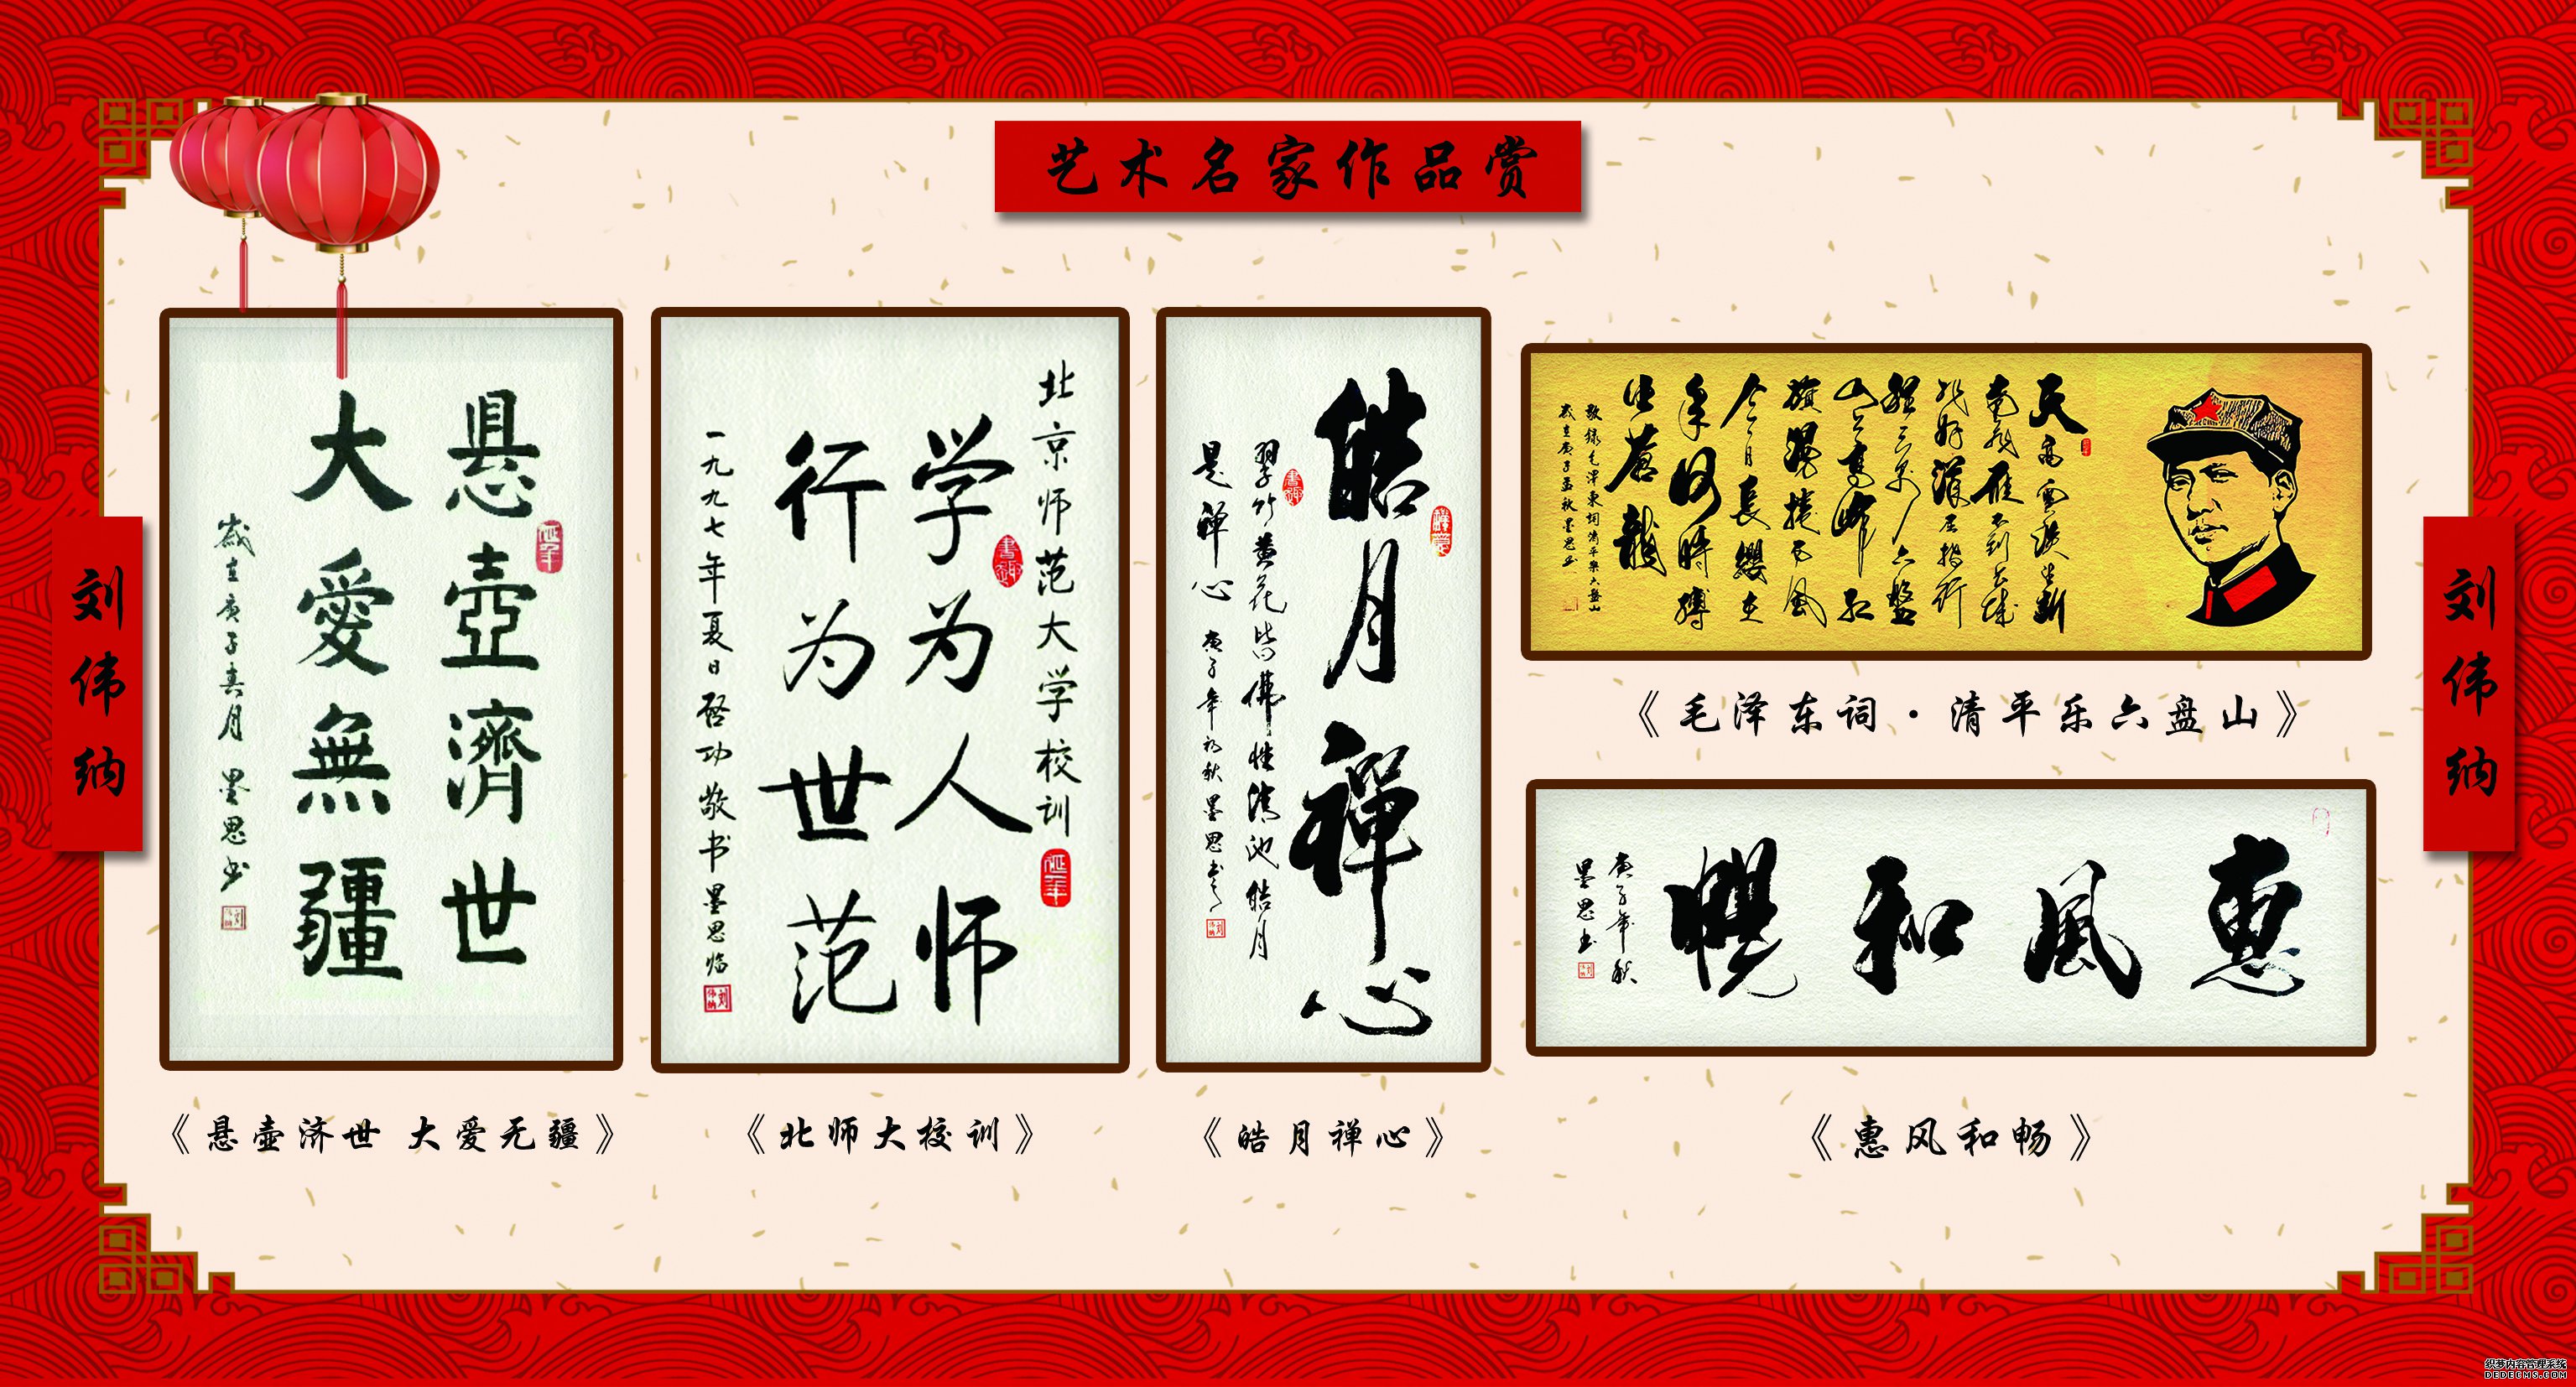 艺术名家作品赏
刘伟纳
刘伟纳
悬壶濟世
大愛無疆
歲在庚子春月 墨思书
《悬壶济世 大爱无疆》
北京师范大学校训
学为人师
行为世范
一九九七年夏日启功敬书墨思临
《北师大校训》
皓月禅心
翠竹黄花皆佛性清池皓月
是禅心 庚子年初秋墨思书
《皓月禅心》
天高雲淡望斷
南飛雁不到長城
非好漢屈指行
程二万六盤
山上高峰红
旗漫捲西風
今日長纓在
手何時縛
住蒼龍
敬録毛澤東詞清平樂六盤山
歲在庚子孟秋墨思书
《毛泽东词·清平乐六盘山》
惠風和暢
庚子年秋
墨思书
《惠风和畅》
织梦内容管理系统
DEDECMS.COM